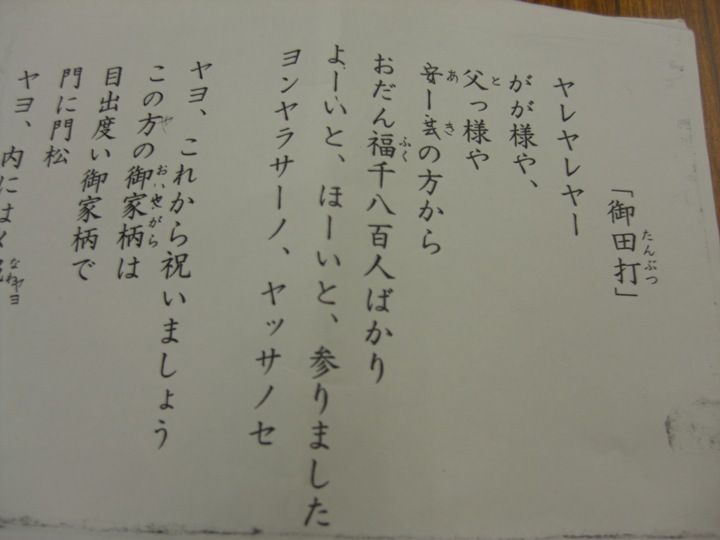 「御田打」
たんぶつ
ヤレヤレヤー
がが様や、
父っ様や
と
安ー芸の方から
あ き
おだん福千八百人ばかり
ふく
よーいと、ほーいと、参りました
ヨンヤラサーノ、ヤッサノセ
ヤヨ、これから祝いましょう
この方の御家柄は
ヤ
おいえがら
目出度い御家柄で
門に門松
ヤヨ、内には
なわ ヤヨ